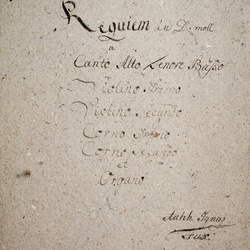 Requiem in D. moll
a
Canto Alto Tenore Basso
Violino Primo
Violino Secundo
Corno Primo
Corno Secundo
et
Organo